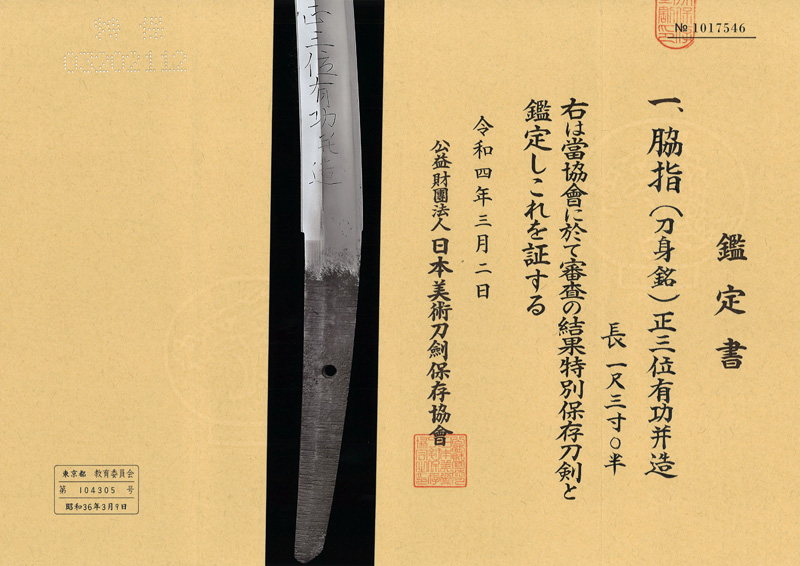 № 1017546
鑑定書
一、脇指(刀身銘)正三位有功并造
長一尺三寸〇半
右は當協會に於て審査の結果特別保存刀剣と
鑑定しこれを証する
令和四年三月二日
公益財團法人日本美術刀劍保存協會
正三位有功并造
東京都 教育委員会
第 104305 号
昭和36年3月9日